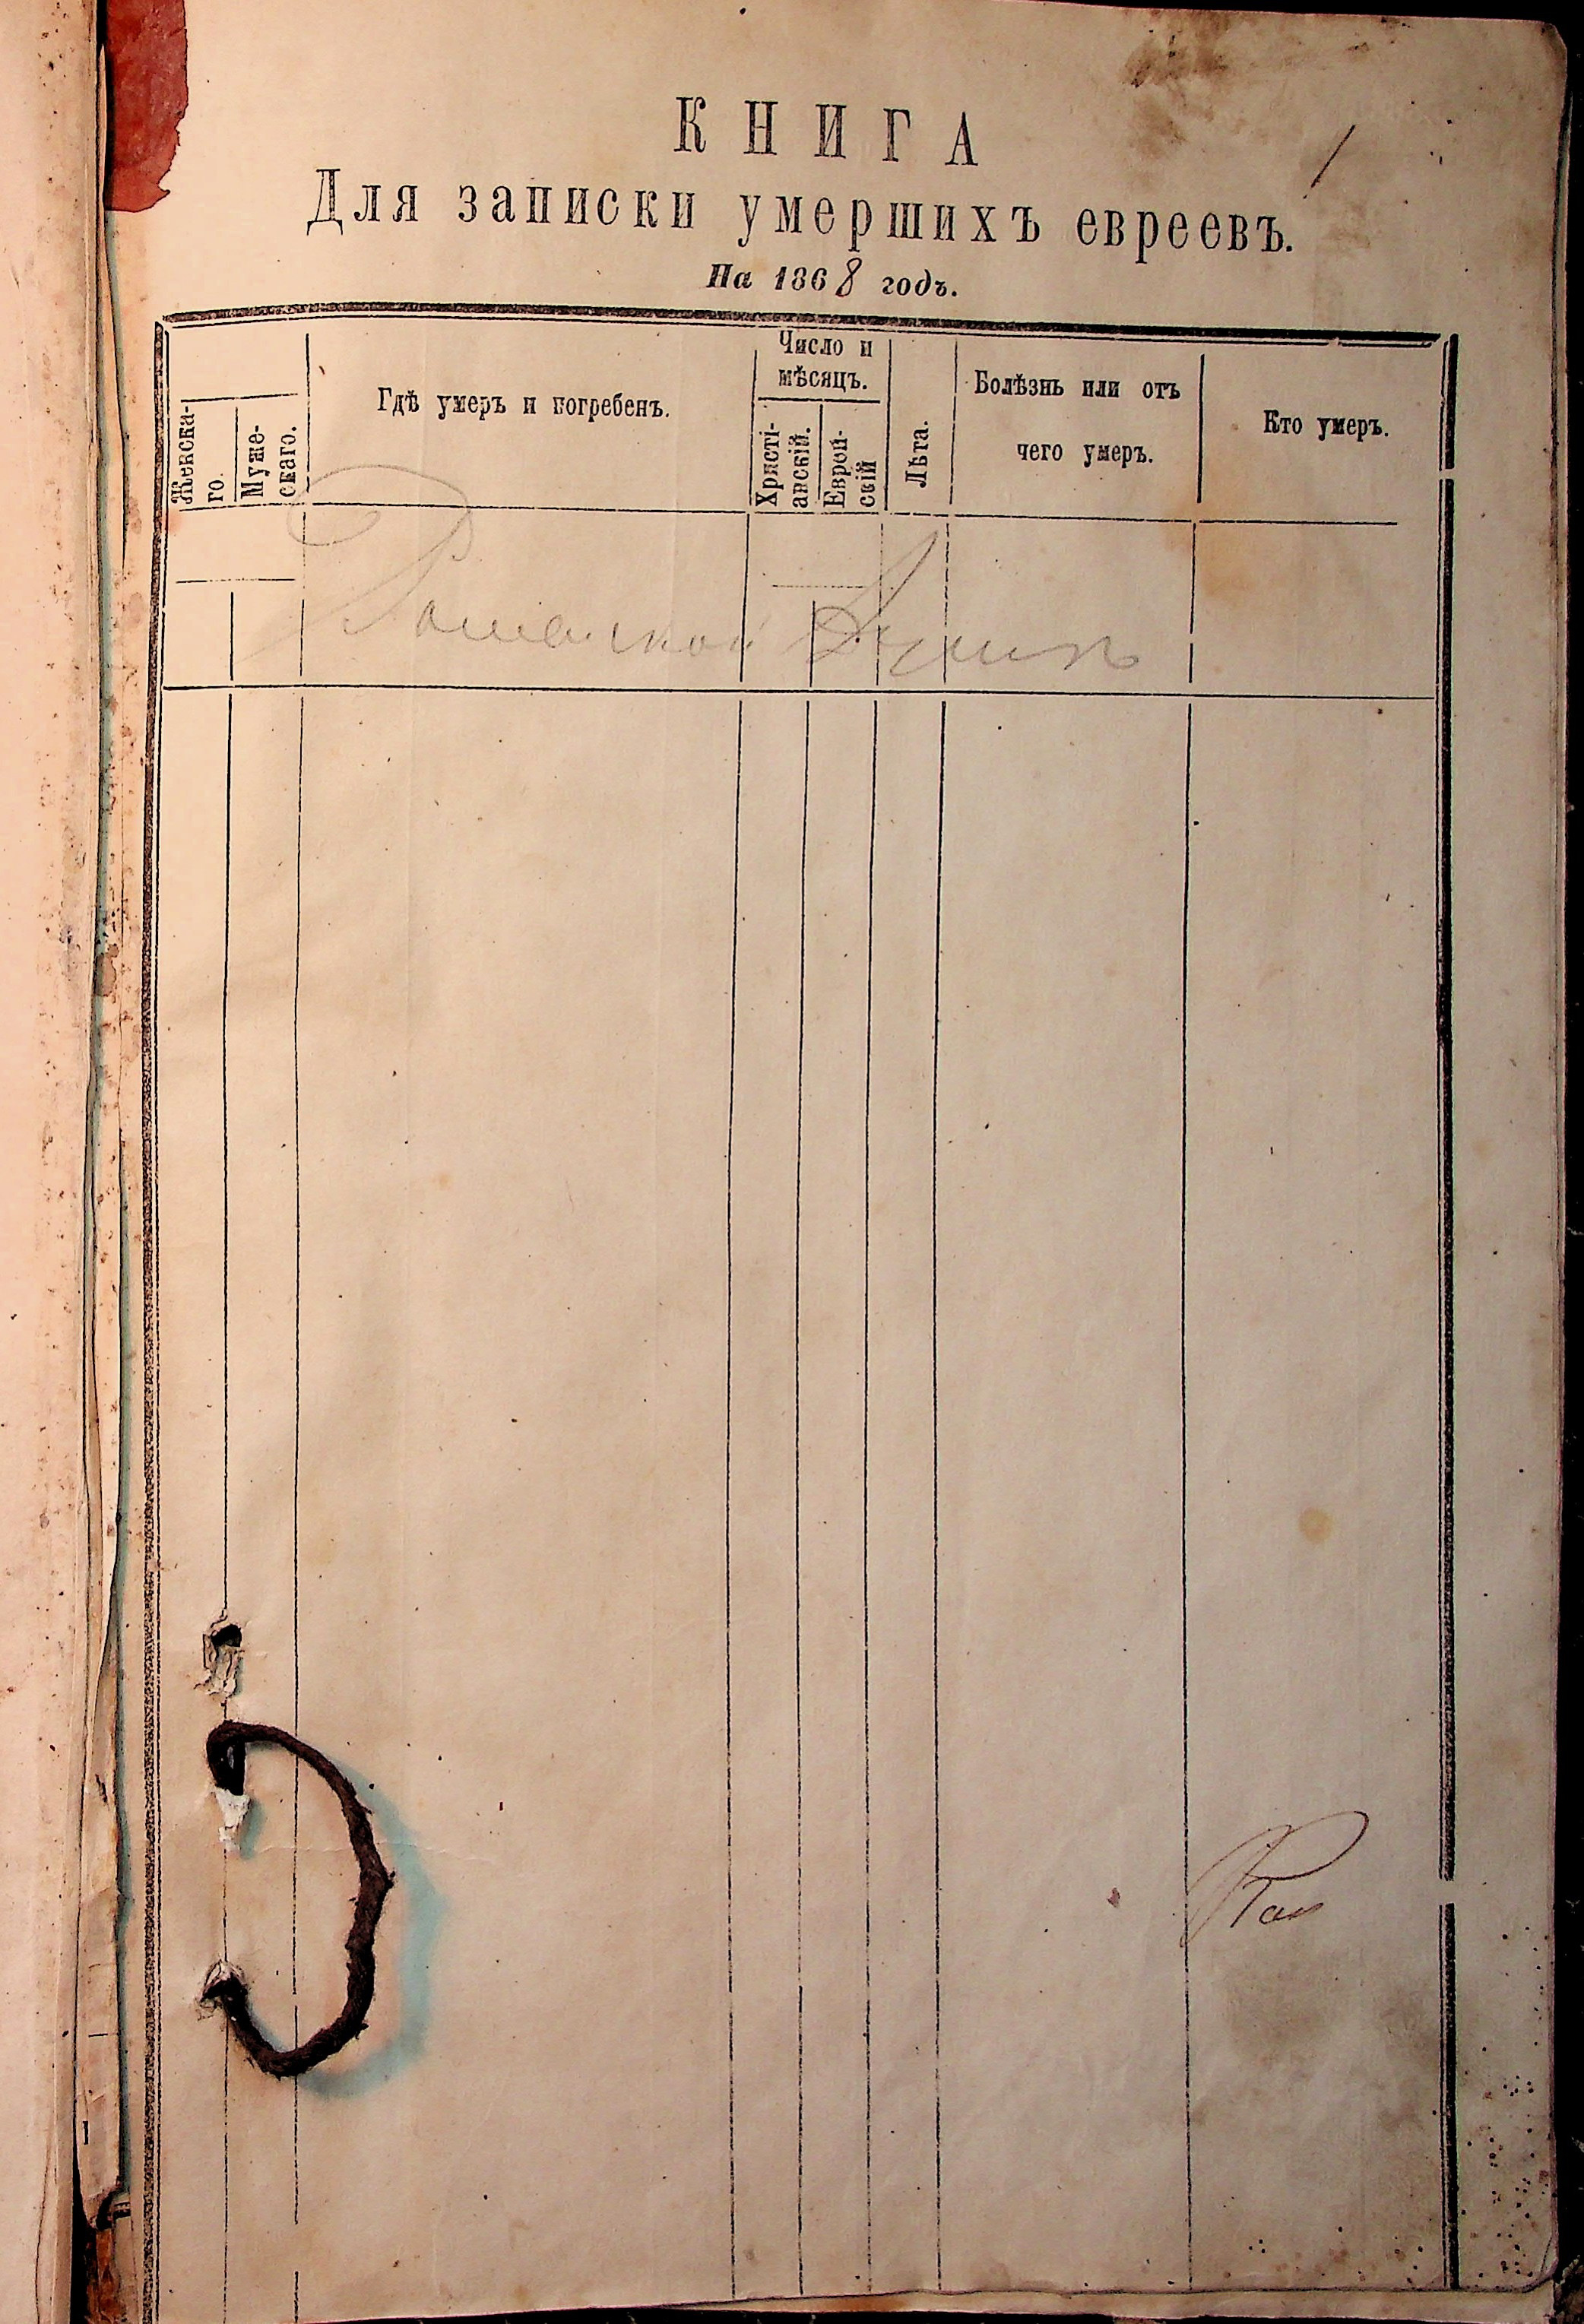 КНИГА
1
Для записки умершихъ евреевъ.
На 1868 годъ.
Женска-
го.
Муже-
скаго.
Гдѣ умеръ и погребенъ.
Число и
мѣсяцъ.
Христі-
анскій.
Еврей-
скій
Лѣта.
Болѣзнь или отъ
чего умеръ.
Кто умеръ.
Думы